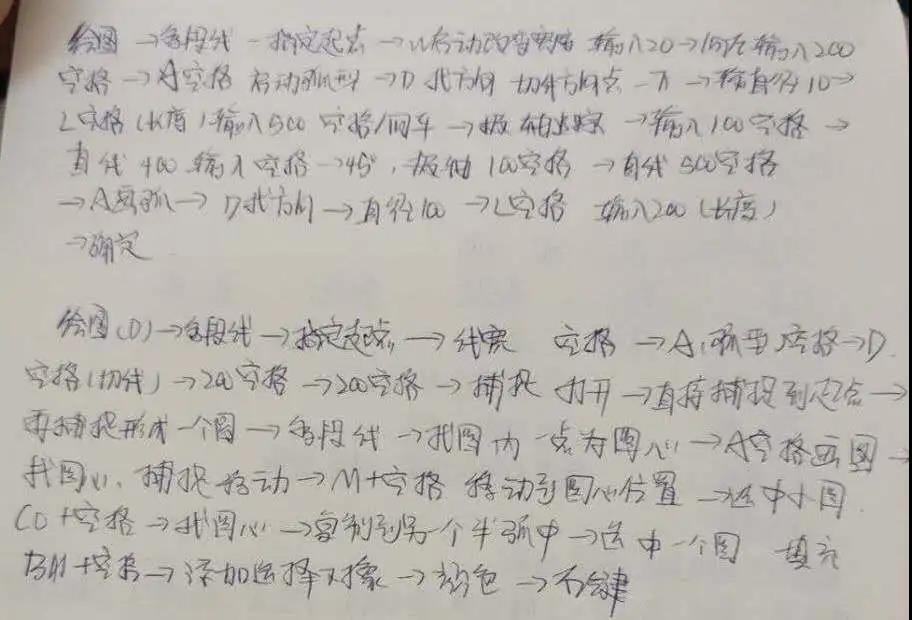 绘图→多段线→指定起点→W启动改变宽度 输入20→ 输入200
空格→A空格 启动弧型→D 找方向 切线方向点一下→输直径10→
L空格(长度)输入500 空格/回车→极轴追踪→输入100空格→
直线400 输入空格→45°,极轴100空格→直线500空格
→A画弧→D找方向→直径100→L空格 输入200(长度)
→确定
绘图(D)→多段线→指定起点→线宽 空格→A(弧型)空格→D
空格(切线)→200空格→200空格→捕捉 打开→直接捕捉到起点→
再捕捉形成一个圆→多段线→找圆内一点为圆心→A空格画圆→
找圆心,捕捉移动→M+空格 移动到圆心位置→选中小圆
CO+空格→找圆心→复制到另一个半弧中→选中一个圆 填充
+空格→添加选择对象→颜色→右键